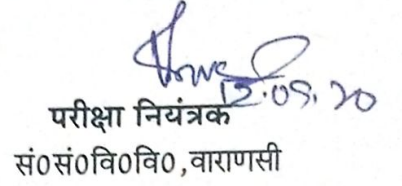 12.09.20
परीक्षा नियंत्रक
सं0सं0वि0वि0,वाराणसी